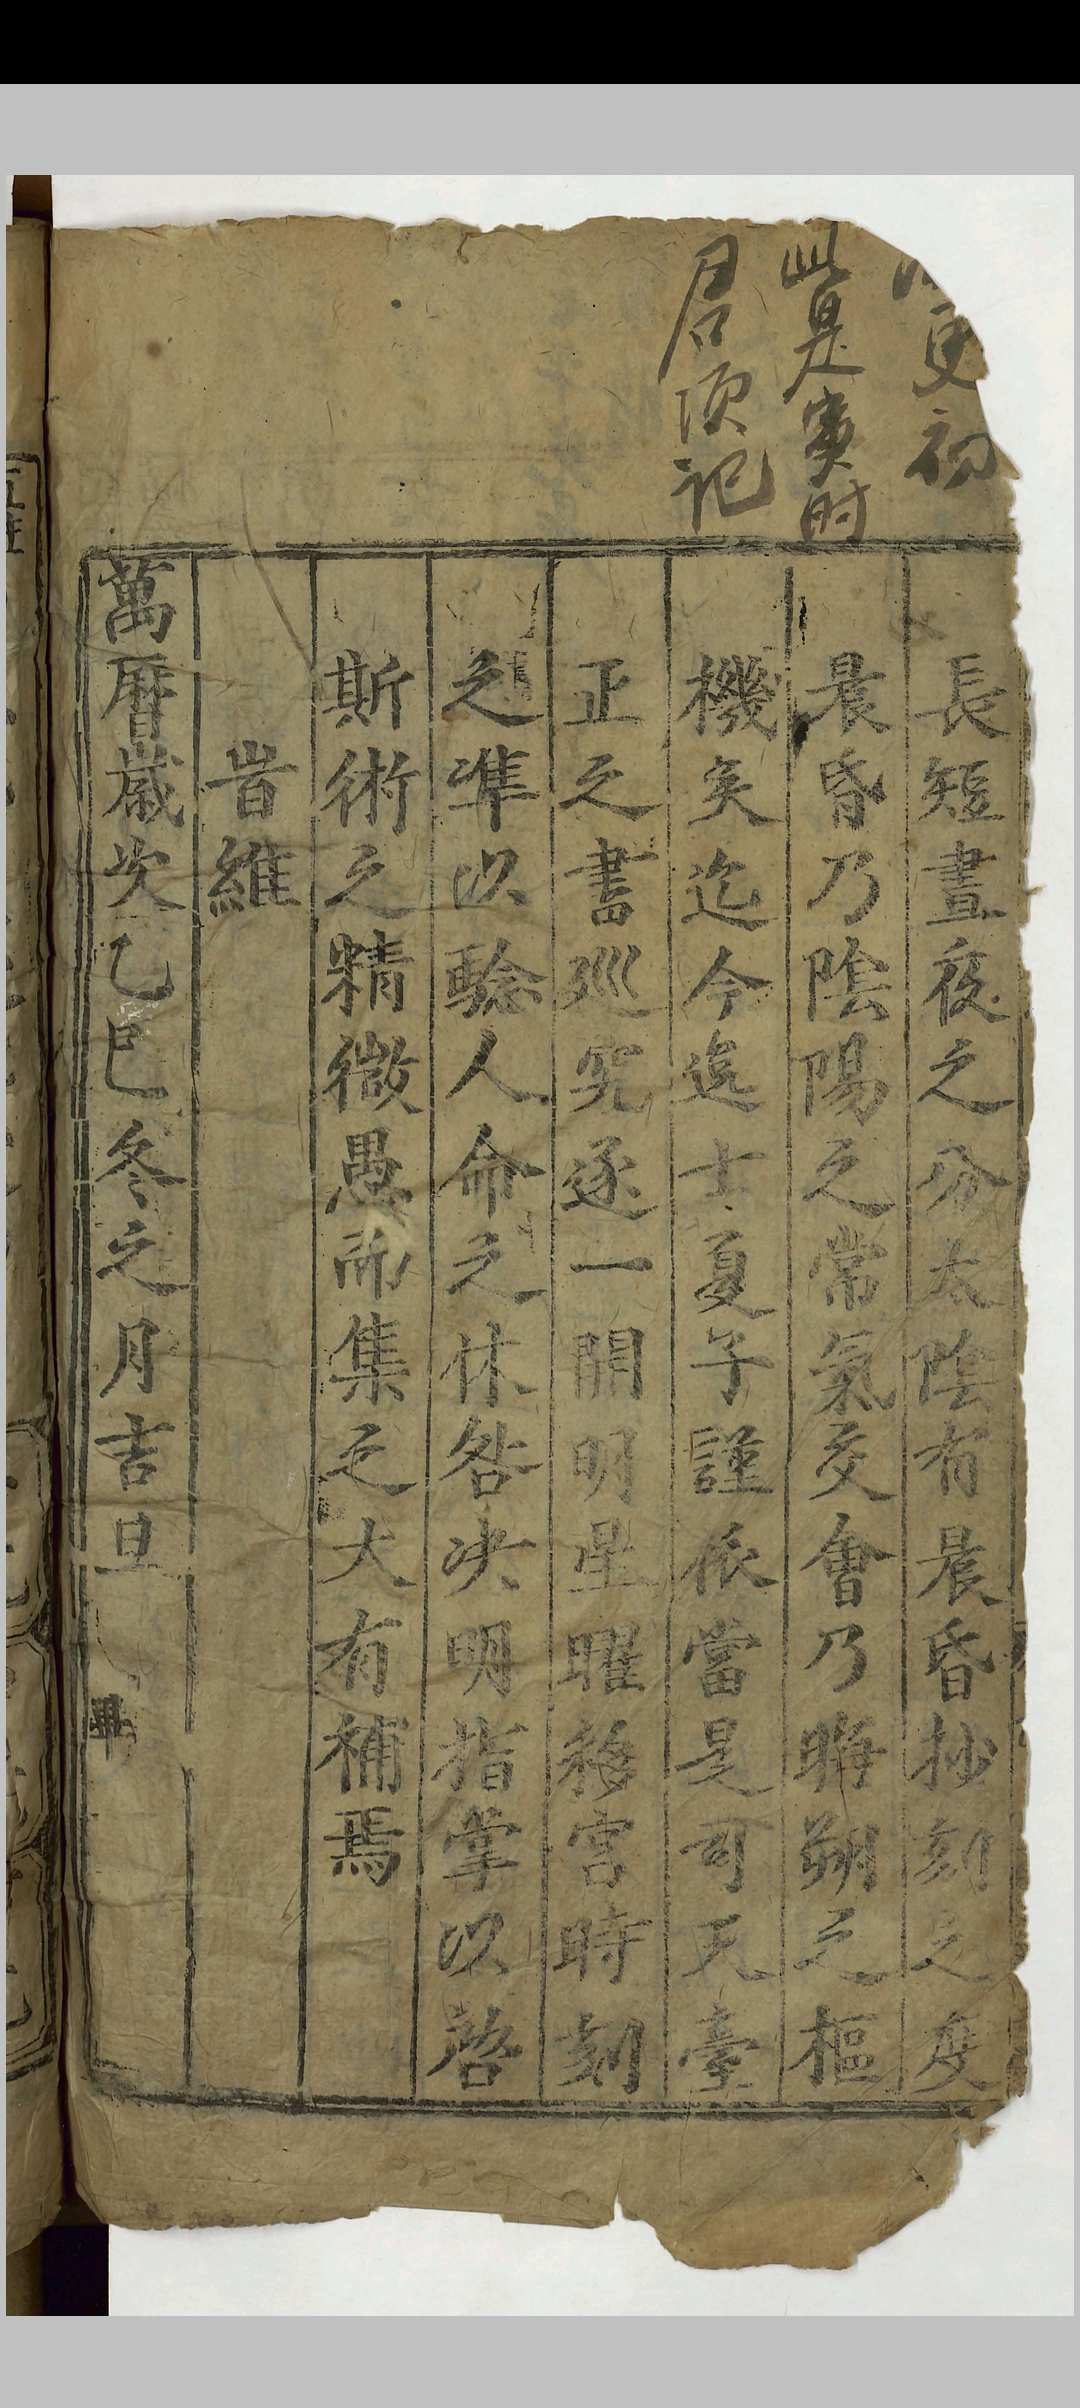 更初
此是寅时
君须记
長短晝夜之分太陰有晨昏抄刻之度
晨昏乃陰陽之常氣交會乃晦朔之樞
機矣迄今逸士夏子謹依當是司天臺
正之書廵究逐一開明星曜移宫時刻
之凖以騐人命之休咎决明指掌以啓
斯術之精微愚所集之大有補焉
旹維
萬曆歲次乙巳冬之月吉旦